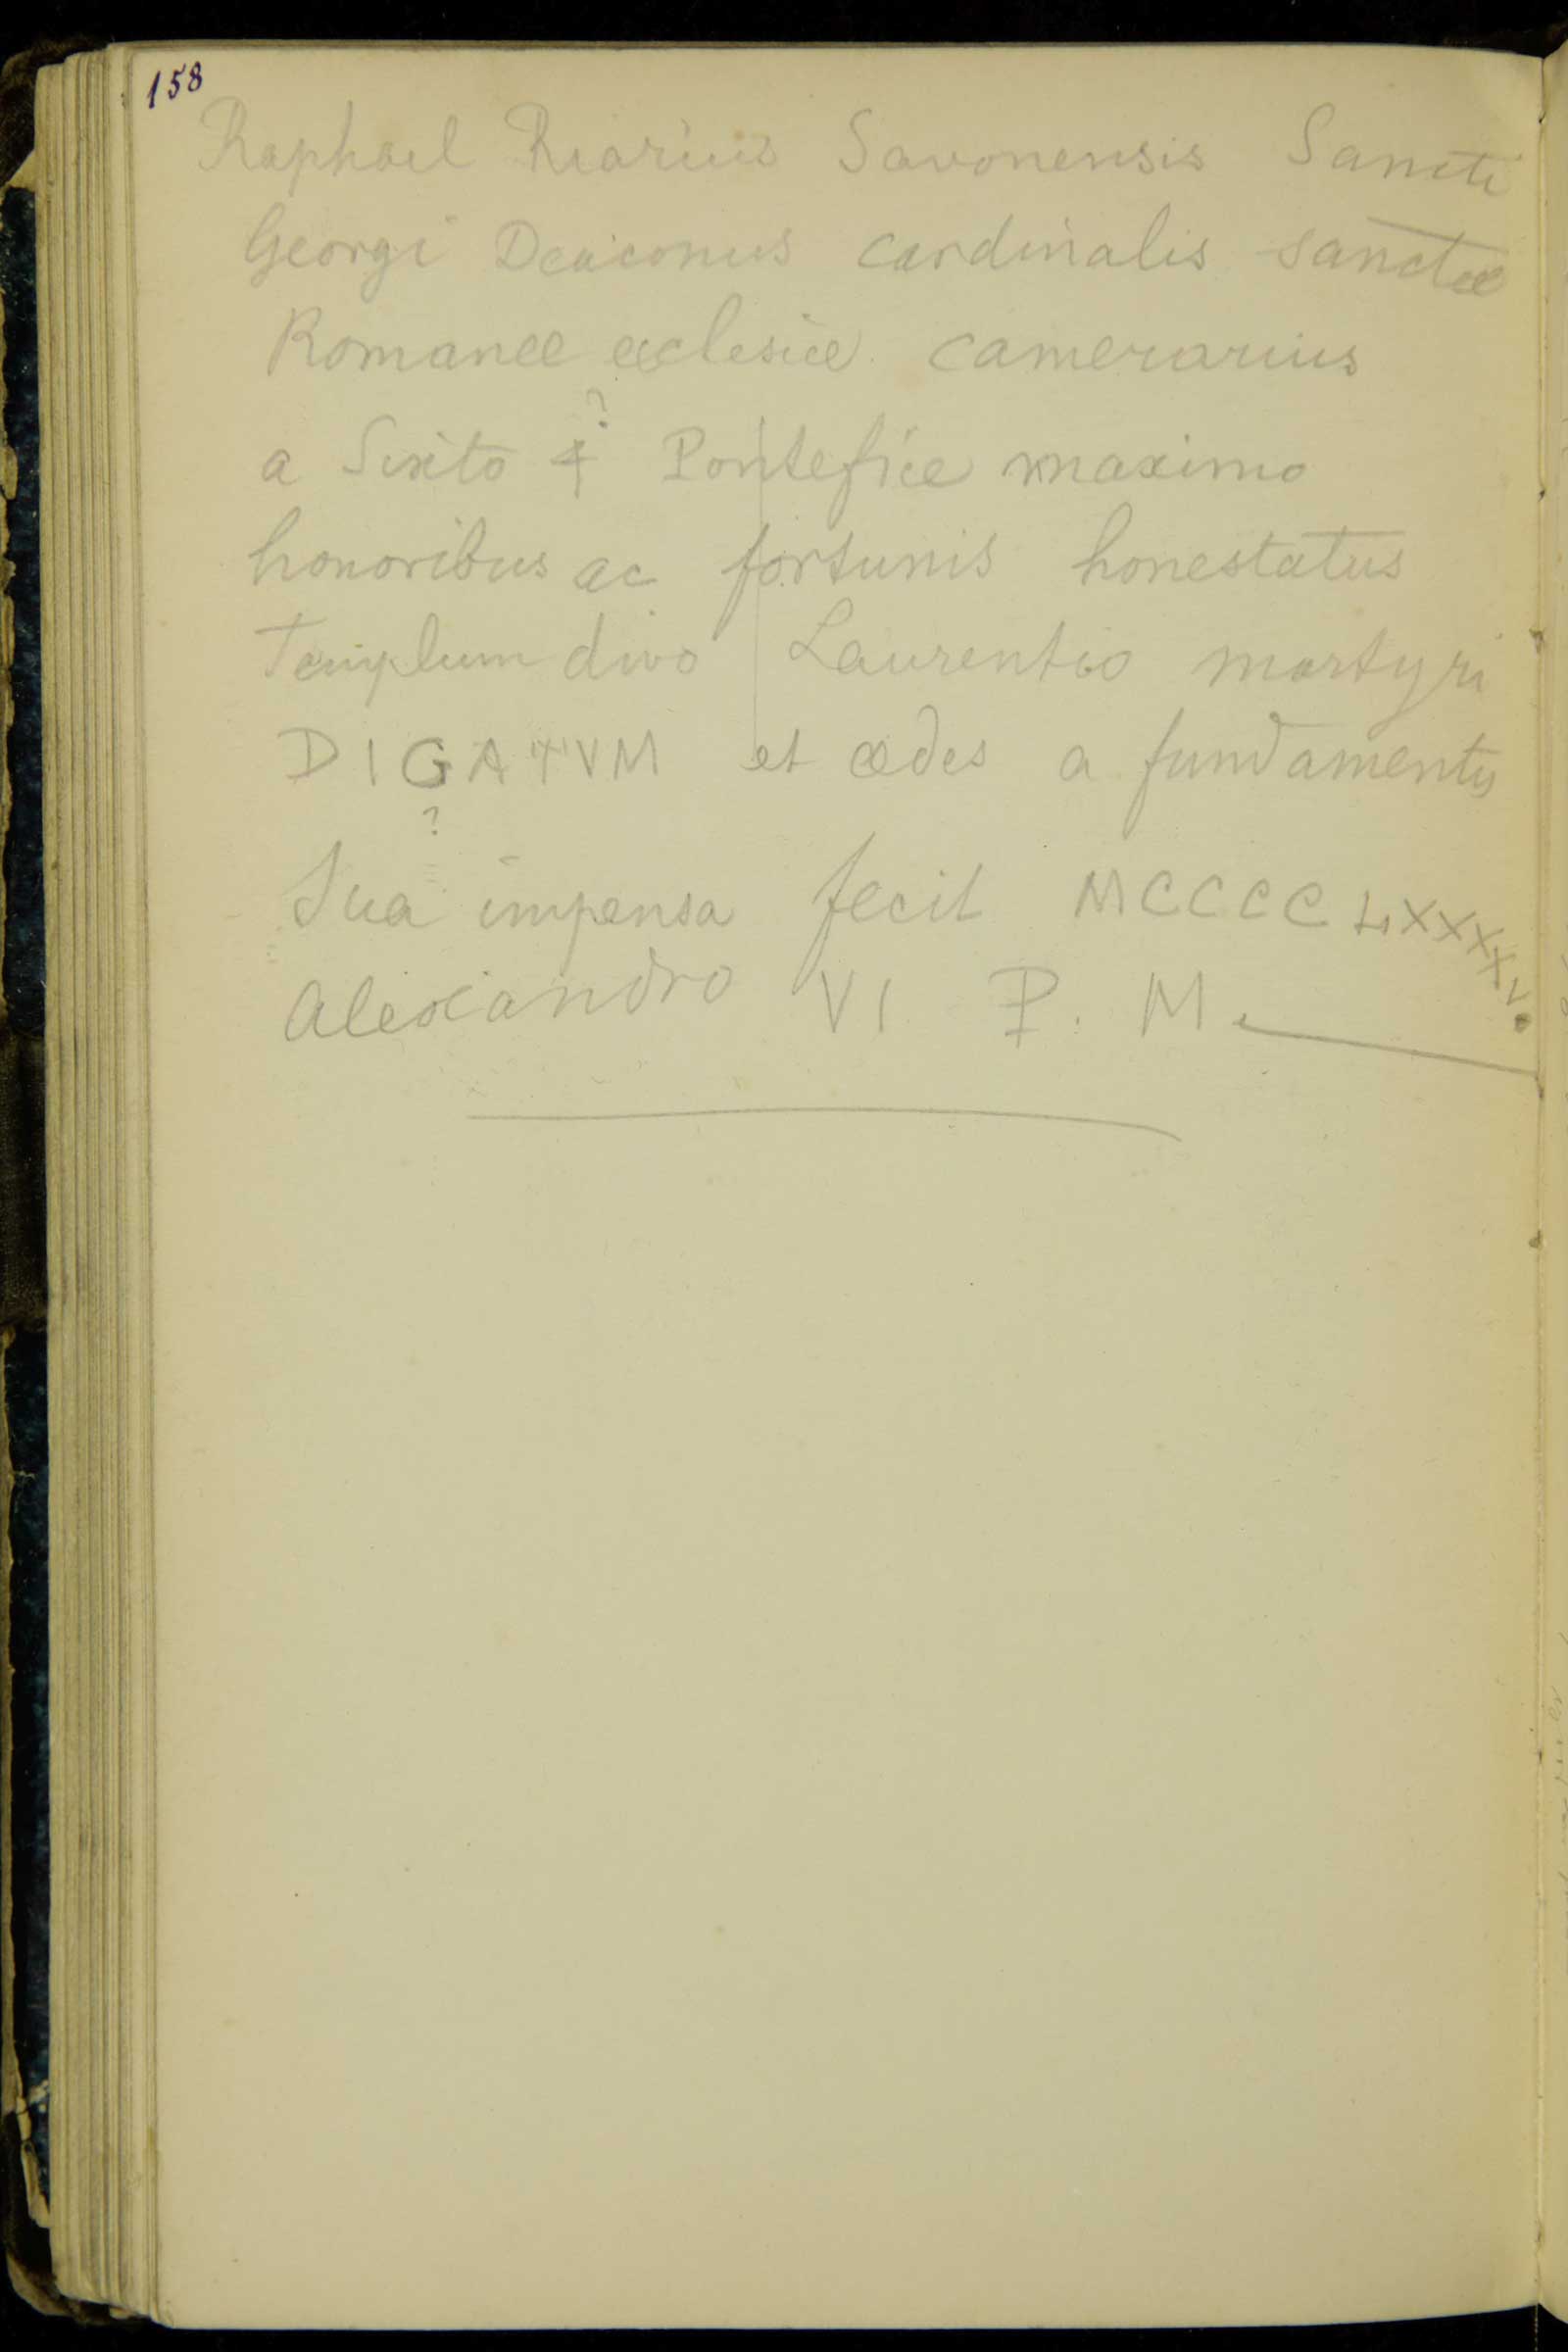 158
Raphael Riarius Savonensis Sancti
Georgi Deaiconus cardinalis sanctæ
Romanæ ecclesiæ camerarius
?
a Sixto 4 Pontefice maximo
honoribus ac fortunis honestatus
Templum divo Laurentio martyri
DIGATVM et ædes a fundamentis
?
Sua impensa fecit MCCCCLXXXXV.
Alexandro VI P. M.